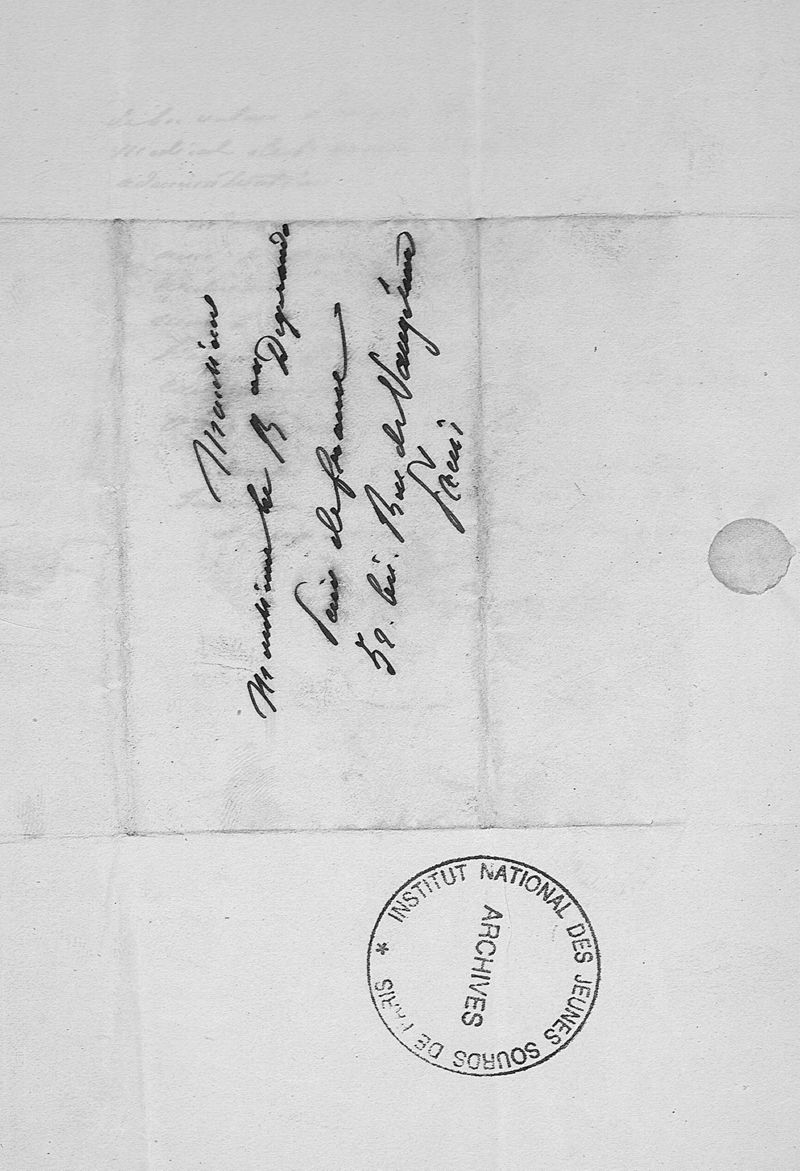 Monsieur
Monsieur le Bon Degerando
Pair de france
52. bis. Rue de Vaugirard
Paris
INSTITUT NATIONAL DES JEUNES SOURDS DE PARIS *
ARCHIVES